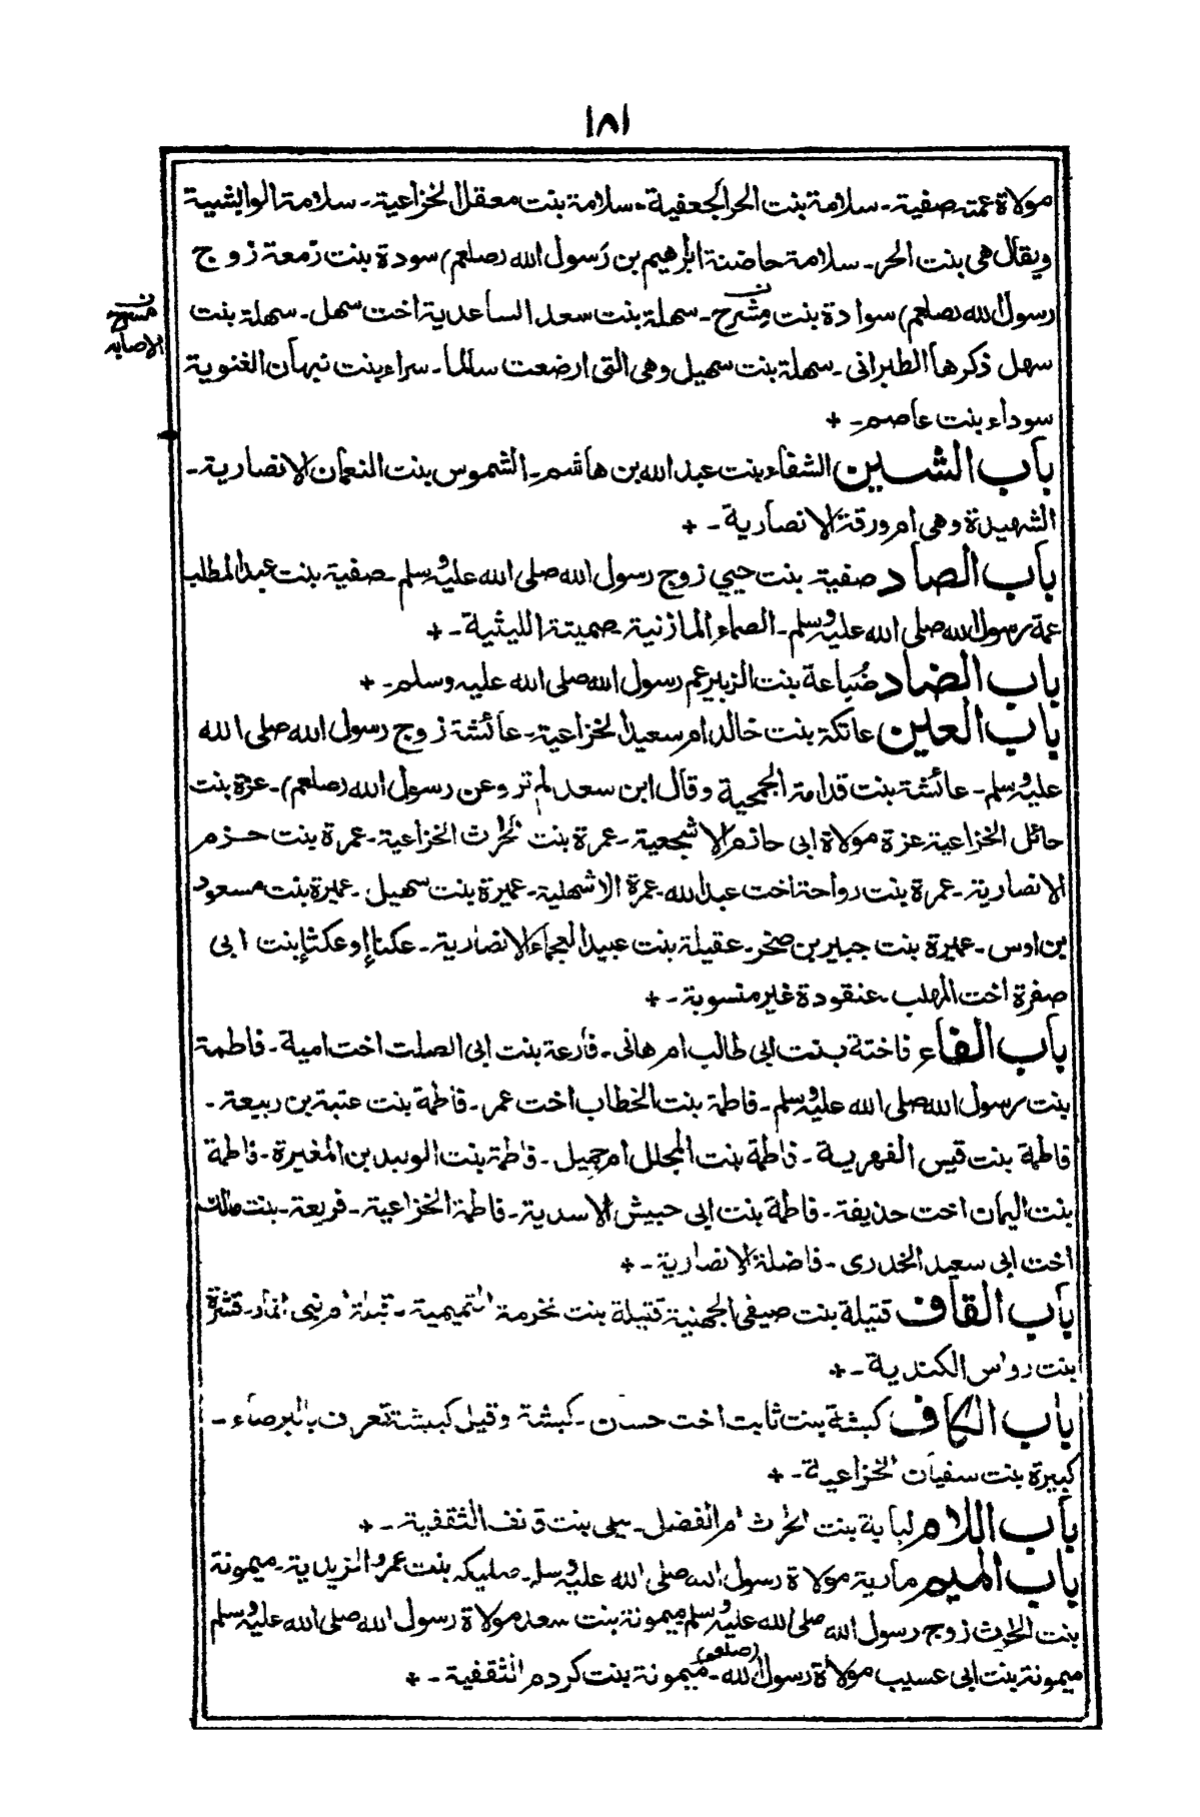 ١٨١
مولاة عمته صفية ـ سلامة بنت الحر الجعفية ـ سلامة بنت معقل الخزاعية ـ سلامة الوابشية
ويقال هى بنت الحر ـ سلامة حاضنة ابرهيم بن رسول الله (صلعم) سودة بنت زمعة زوج
رسول الله (صلعم) سوادة بنت مِشْرح ـ سهلة بنت سعد الساعدية اخت سهل ـ سهلة بنت
ن مسرح
الاصابه
سهل ذكرها الطبرانى ـ سهلة بنت سهيل وهى التى ارضعت سالما ـ سراء بنت نبهان الغنوية
سوداء بنت عاصم ـ +
باب الشين الشفاء بنت عبد الله بن هاشم ـ الشموس بنت النعمان الانصارية ـ
الشهيدة وهى ام ورقة الانصارية ـ +
باب الصاد صفية بنت حيي زوج رسول الله صلى الله عليه وسلم ـ صفية بنت عبد المطلب
عمة رسول الله صلى الله عليه وسلم ـ الصماء المازنية ـ صميتة الليثية ـ +
باب الضاد ضُبَاعة بنت الزبير عم رسول الله صلى الله عليه وسلم ـ +
باب العين عاتكة بنت خالد ام سعيد الخزاعية ـ عائشة زوج رسول الله صلى الله
عليه وسلم ـ عائشة بنت قدامة الجمحية وقال ابن سعد لم ترو عن رسول الله (صلعم) ـ عزة بنت
حائل الخزاعية عزة مولاة ابى حازم الاشجعية ـ عمرة بنت الحرث الخزاعية ـ عمرة بنت حزم
الانصارية ـ عمرة بنت رواحة اخت عبد الله ـ عمرة الاشهلية ـ عميرة بنت سهيل ـ عميرة بنت مسعود
بن اوس ـ عميرة بنت جبير بن صخر ـ عقيلة بنت عبيد الانصارية ـ بنت ابى
صفرة اخت المهلب ـ عنقودة غير منسوبة ـ +
باب الفاء فاختة بنت ابى طالب ام هانى ـ فارعة بنت ابى الصلت اخت امية ـ فاطمة
بنت رسول الله صلى الله عليه وسلم ـ فاطمة بنت الخطاب اخت عمر ـ فاطمة بنت عتبة بن ربيعة ـ
فاطمة بنت قيس الفهرية ـ فاطمة بنت المجلل ام جميل ـ فاطمة بنت الوليد بن المغيرة ـ فاطمة
بنت اليمان اخت حذيفة ـ فاطمة بنت ابى حبيش الاسدية ـ فاطمة الخزاعية ـ فريعة ـ بنت مالك
اخت ابى سعيد الخدرى ـ فاضلة الانصارية ـ +
باب القاف قتيلة بنت صيفى الجهنية قتيلة بنت مخرمة التميمية ـ قيلة ام بنى انمار ـ
بنت رواس الكندية ـ +
باب الكاف كبشة بنت ثابت اخت حسان ـ كبشة وقيل كبيشة تعرف بالبرصاء ـ
كبيرة بنت سفيان الخزاعية ـ +
باب اللام لبابة بنت الحرث ام الفضل ـ ليلى بنت قانف الثقفية ـ +
باب الميم مارية مولاة رسول الله صلى الله عليه وسلم ـ مليكه بنت عمرو الزيدية ـ ميمونة
بنت الحرث زوج رسول الله صلى الله عليه وسلم ميمونة بنت سعد مولاة رسول الله صلى الله عليه وسلم
ميمونة بنت ابى عسيب مولاة رسول الله (صلعم) ـ ميمونة بنت كردم الثقفية ـ +